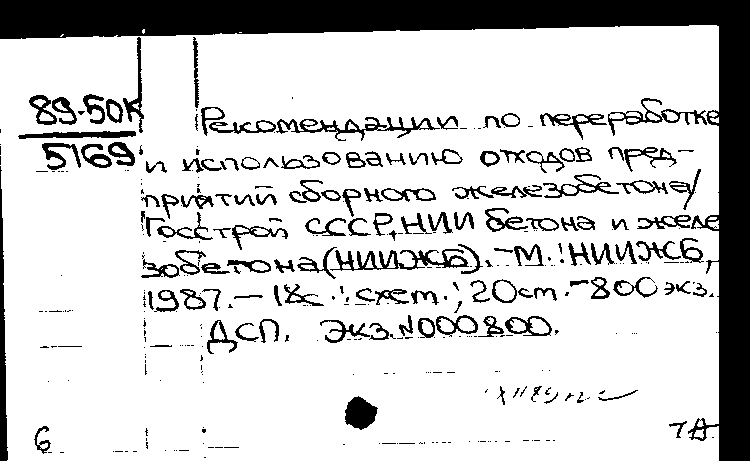 89-50К
5169
Рекомендации по переработке
и использованию отходов пред-
приятий сборного железобетона/
Госстрой СССР, НИИ бетона и желе
зобетона (НИИЖБ). - М.: НИИЖБ,
1987. - 18с.: схем.; 20см. - 800 экз.
ДСП. Экз. №000800.
6